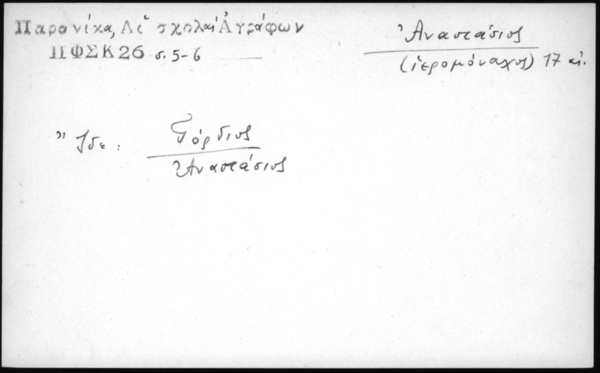 Παρανίκα, Αἱ σχολαὶ Ἀγράφων
ΠΦΣΚ 26 σ. 5-6
Ἀναστάσιος
(ἱερομόναχος) 17 αἰ.
Ἴδε: Γόρδιος
Ἀναστάσιος